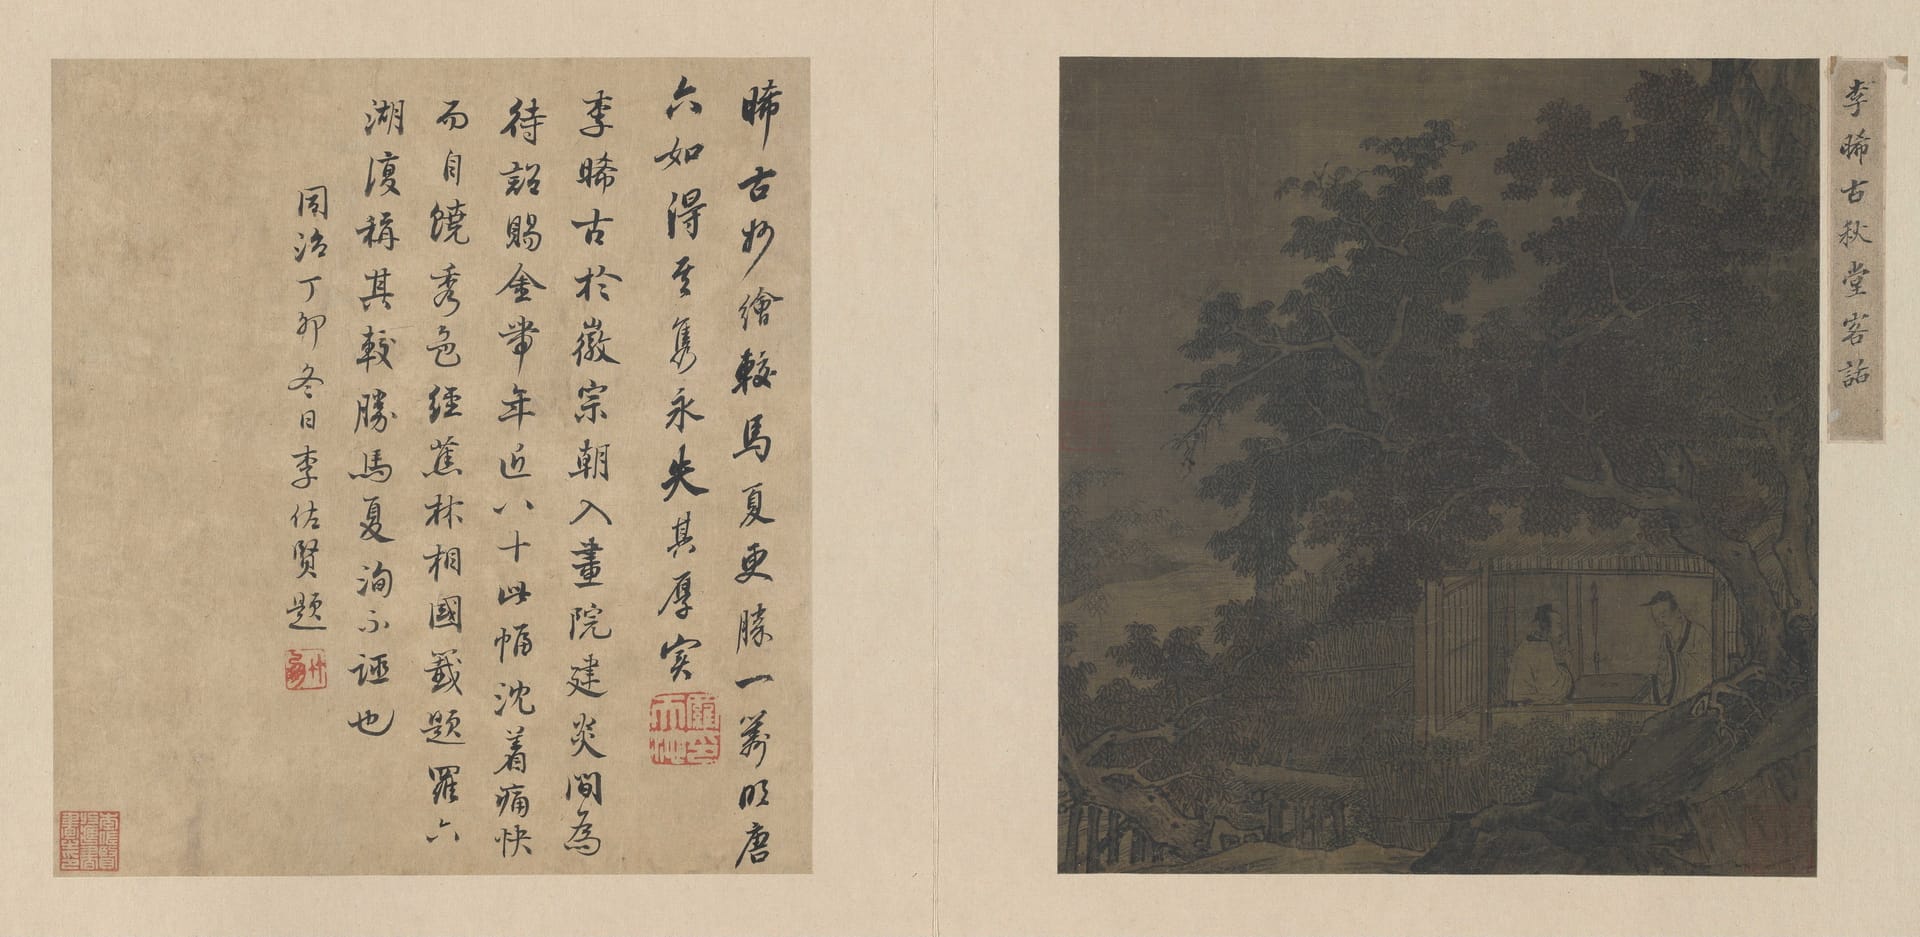 李晞古秋堂客話
晞古妙繪較馬夏更勝一籌明唐
六如得其雋永失其厚實
李晞古於徽宗朝入畫院建炎間為
待詔賜金帶年近八十此幅沈着痛快
而自饒秀色經蕉林相國籤題羅六
湖復稱其較勝馬夏洵不誣也
同治丁卯冬日李佐賢題